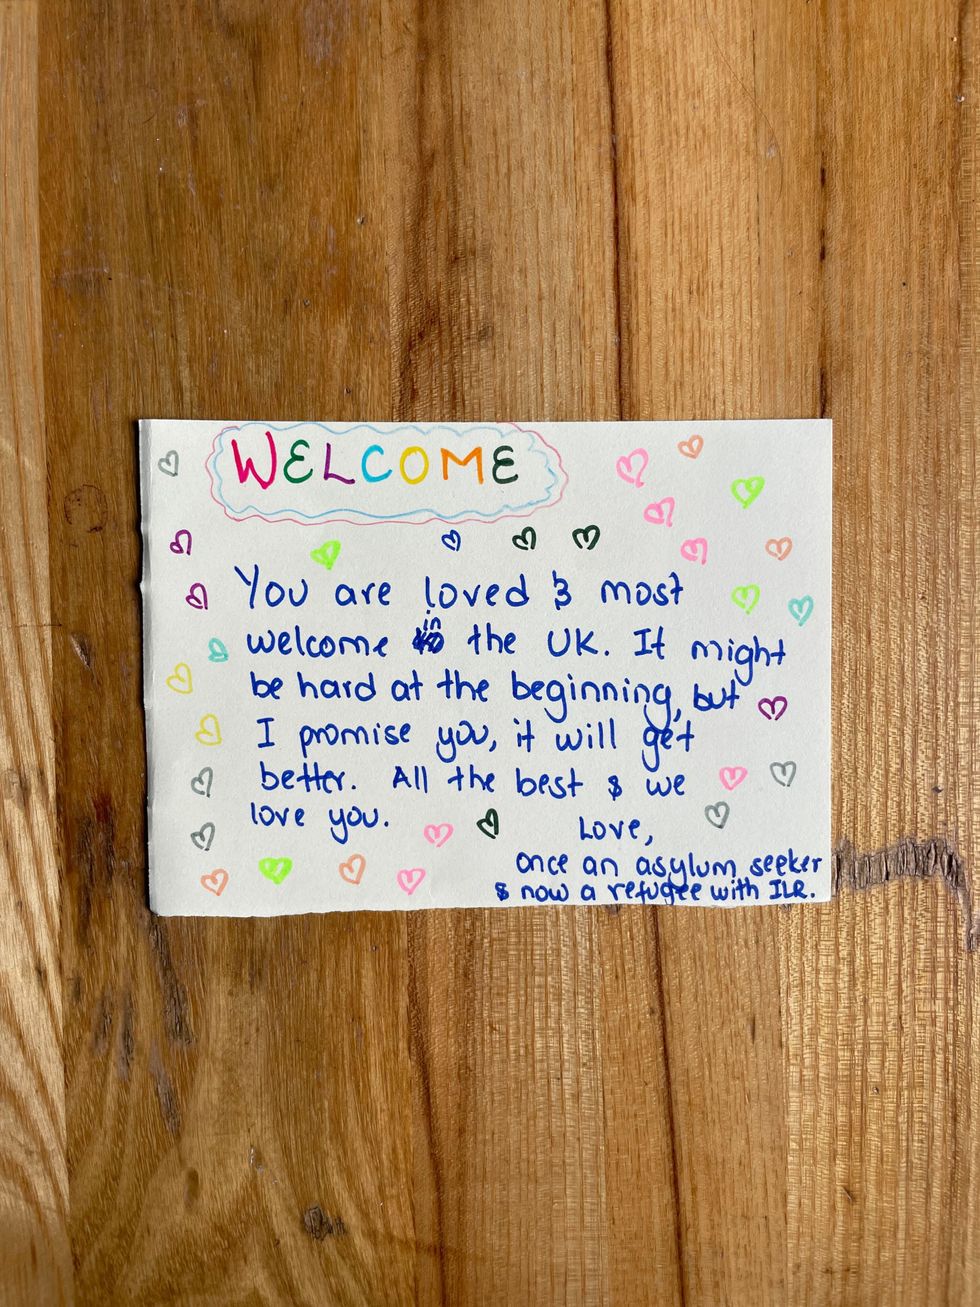 WELCOME
You are loved & most
welcome in the UK. It might
be hard at the beginning, but
I promise you, it will get
better. All the best & we
love you.
Love,
once an asylum seeker
& now a refugee with ILR.